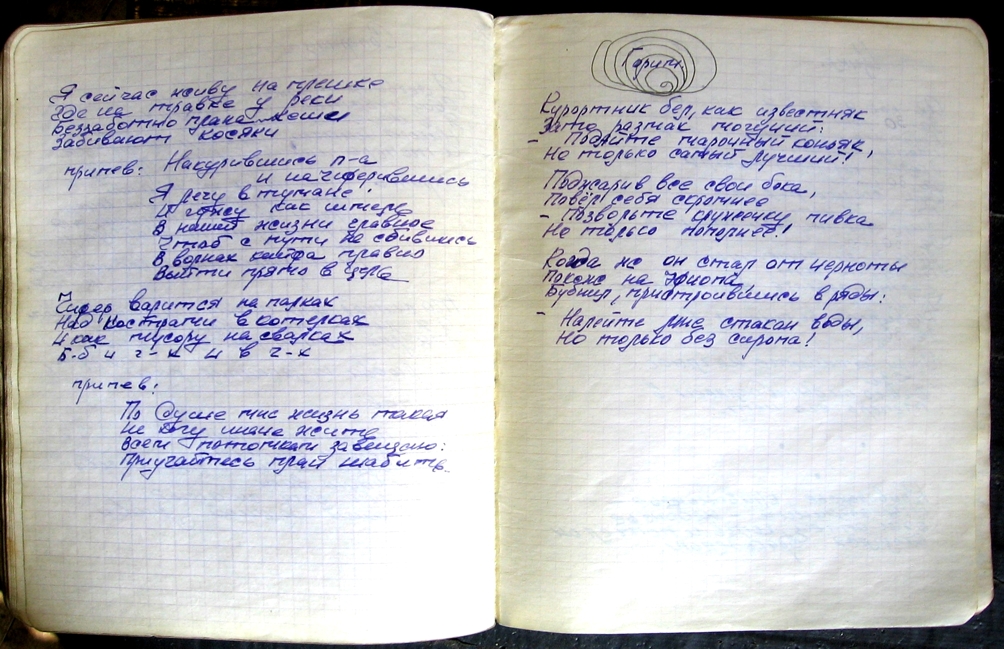 Я сейчас живу на плешке
Где на травке у реки
Беззаботно плана
Забивают косяки
припев: Накурившись п-а
и начиферившись
Я лечу в тумане!
И гонсу как
В нашей жизни главное
Чтоб с пути не сбившись
В волнах кайфа плавно
Выйти прямо в
Чифер варится на палках
Над кострами в котелках
И как мусору на свалках
Б-б и г-к и в г-х
припев:
По душе мне жизнь такая
Не могу иначе жить
Всем потомкам завещаю:
Приучайтесь план шабить.
Горит.
Курортник бел, как известняк
Зато размах могучий:
- Подайте марочный коньяк,
Но только самый лучший!
Поджарив все свои бока,
Повёл себя скромнее
- Позвольте кружечку пивка
Но только
Когда же он стал от черноты
Похож на Эфиопа,
Бубнил, пристроившись в ряды:
- Налейте мне стакан воды,
Но только без сиропа!